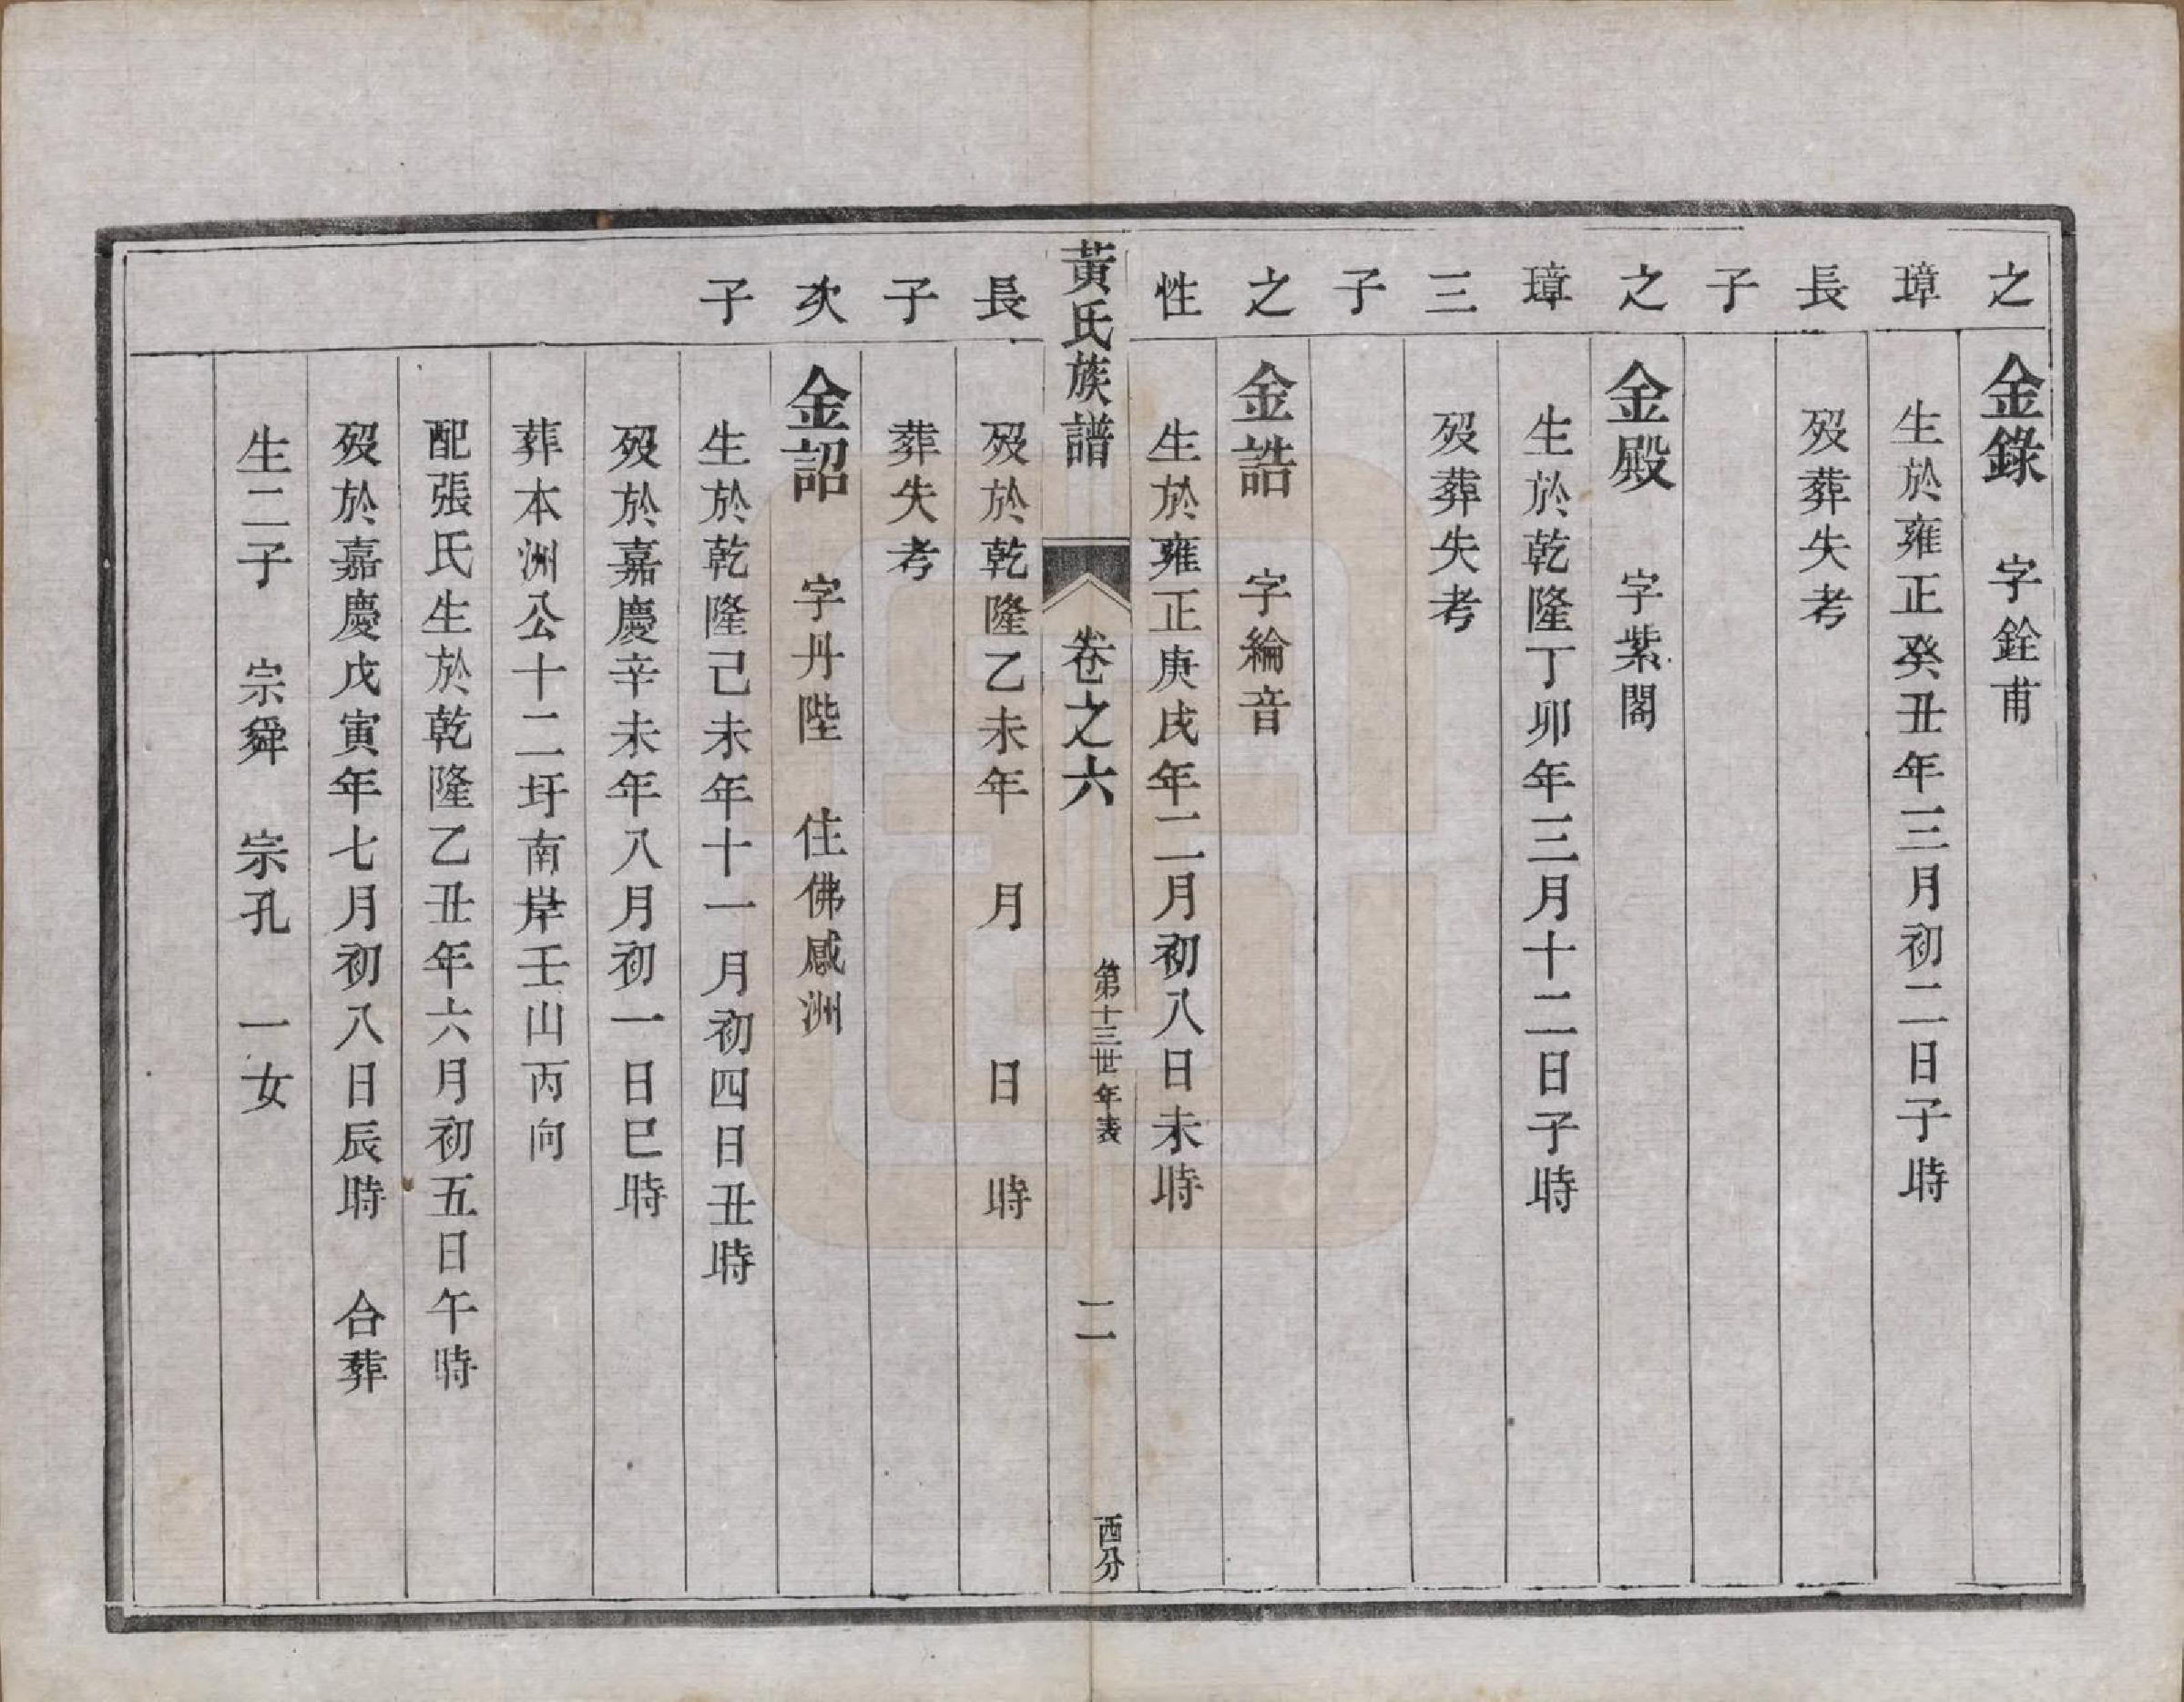 之 金錄 字銓甫
璋 生於雍正癸丑年三月初二日子時
長 歿葬失考
子
之 金殿 字紫閣
璋 生於乾隆丁卯年三月十二日子時
三 歿葬失考
子
之 金誥 字綸音
性 生於雍正庚戌年二月初八日未時
黃氏族譜 卷之六 第十三世年表 二 西分
長 歿於乾隆乙未年 月 日 時
子 葬失考
次 金詔 字丹陛 住佛感洲
子 生於乾隆己未年十一月初四日丑時
歿於嘉慶辛未年八月初一日巳時
葬本洲公十二圩南岸壬山丙向
配張氏生於乾隆乙丑年六月初五日午時
歿於嘉慶戊寅年七月初八日辰時 合葬
生二子 宗舜 宗孔 一女